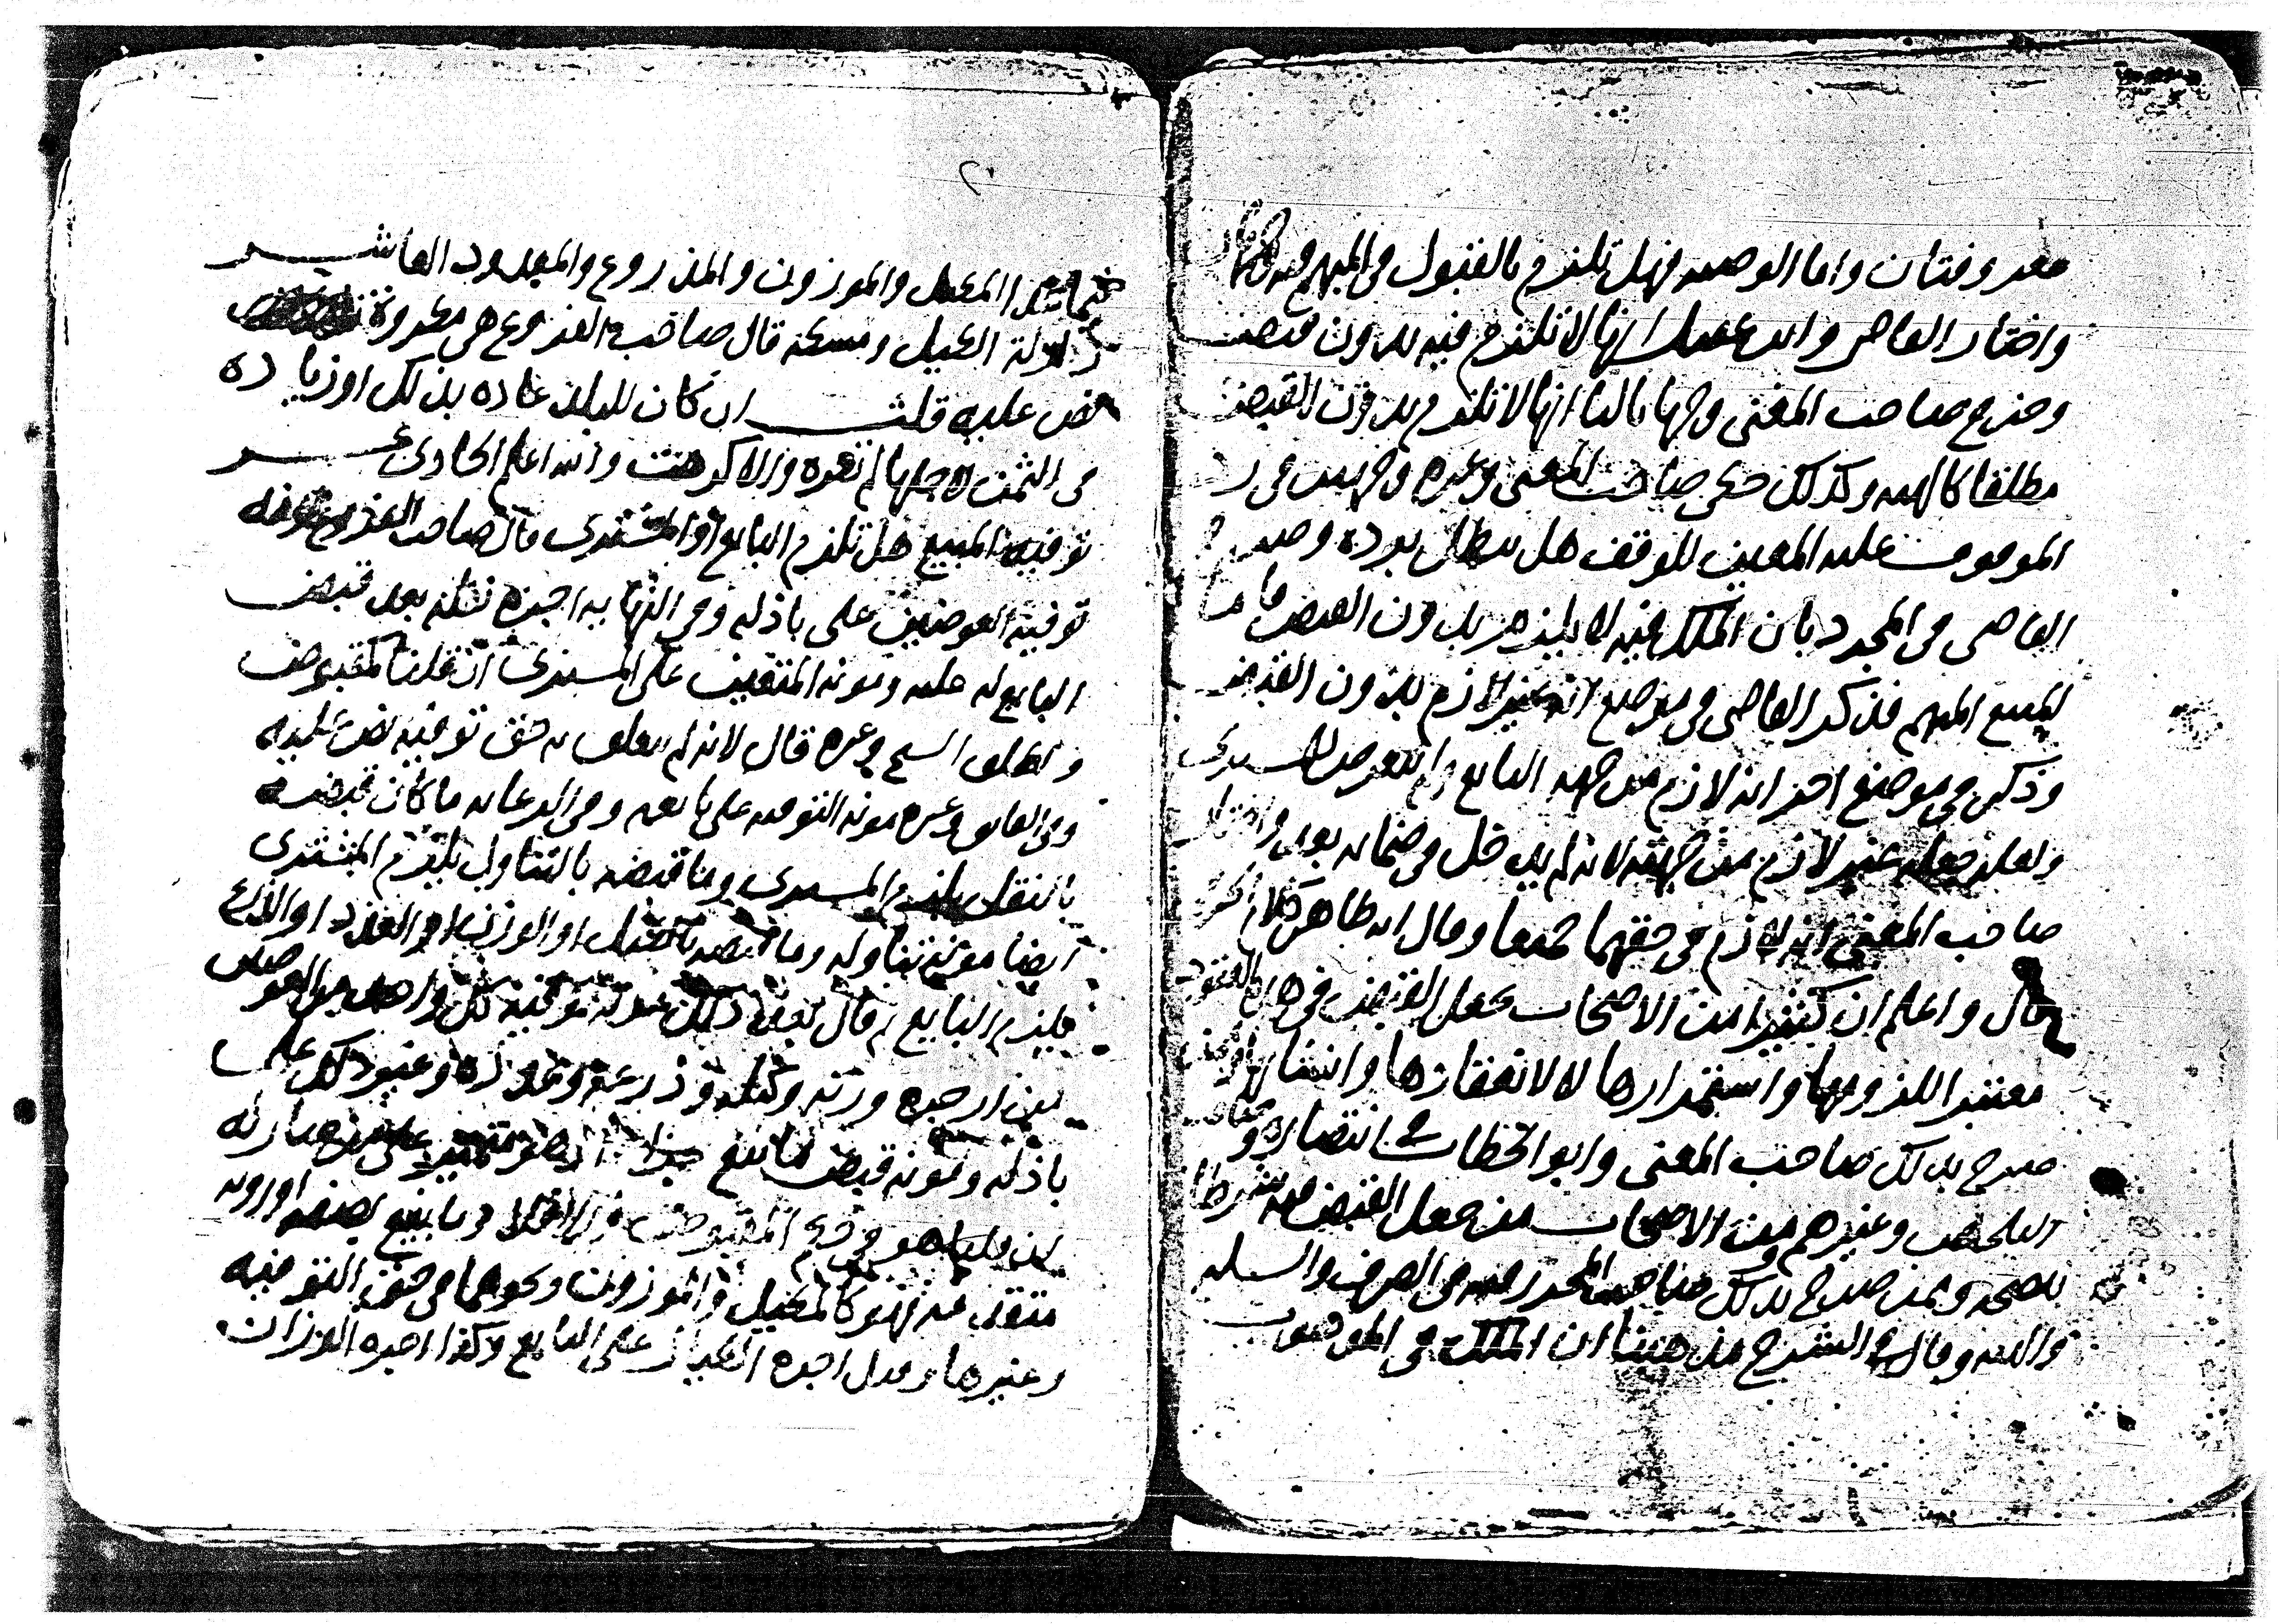 معروفتان واما الوصيه فهل تلزم بالقبول في المبهم فيه وجهان
واختار القاضي وابن عقيل انها لا تلزم فيه بدون قبض
وخرج صاحب المغني وجها ثالثا انها لا تلزم بدون القبض
مطلقا كالهبه وكذلك حكى صاحب المغني وغيره وجهين في رد
الموقوف عليه المعين للوقف هل يبطل برده وصرح
القاضي في المجرد بان الملك فيه لا يلزم بدون القبض فاما
المبيع المبهم فذكر القاضي في موضع انه غير لازم بدون القبض
وذكر في موضع اخر انه لازم من جهه البايع ولم يتعرض للمشتري
ولعله جعله غير لازم من جهته لانه لم يدخل في ضمانه بعد واختار
صاحب المغني انه لازم في حقهما جميعا وقال انه ظاهر كلام الخرقي
قال واعلم ان كثيرا من الاصحاب يجعل القبض في هذه العقود
معتبرا للزومها واستمرارها لا لانعقادها وانشائها وممن
صرح بذلك صاحب المغني وابو الخطاب في انتصاره وصاحب
التلخيص وغيرهم ومن الاصحاب من جعل القبض فيه شرطا
للصحه وممن صرح بذلك صاحب المحرر فيه في الصرف والسلم
والهبه وقال في الشرح مذهبنا ان الملك في الموهوب
المكيل والموزون والمذروع والمعدود العاشر
زلزلة الكيل ومسحه قال صاحب الفروع هي مكروهة
نص عليه قلت ان كان للبلد عاده بذلك او زياده
في الثمن لاجلها لم تكره والا كرهت والله اعلم الحادي عشر
توفية المبيع هل تلزم البايع او المشتري قال صاحب الفروع
توفية العوضين على باذله وفي النهايه اجرة نقله بعد قبض
البايع له عليه ومونه المتعين على المشتري ان قلنا كمقبوض
واطلق الشيخ وغيره قال لانه لم يتعلق به حق توفيه نص عليه
وفي الفايق وغيره مونه التوفيه على بايعه وفي الرعايه ما كان قبضه
بالنقل يلزم المشتري وما قبضه بالتناول يلزم المشتري
ايضا مونة تناوله وما قبضه بالكيل او الوزن او العدد او الذرع
فيلزم البايع ثم قال بعد ذلك مونة توفية كل واحد من العوضين
من اجره وزنه وكيله وذرعه وعده وغير ذلك على
باذله ومونه قبض ما بيع
وما بيع بصفه او رويه
متقدمه فهو كالمكيل والموزون ونحوهما في حق التوفيه
وغيرها وبدل اجره الكيال على البايع وكذا اجره الوزان